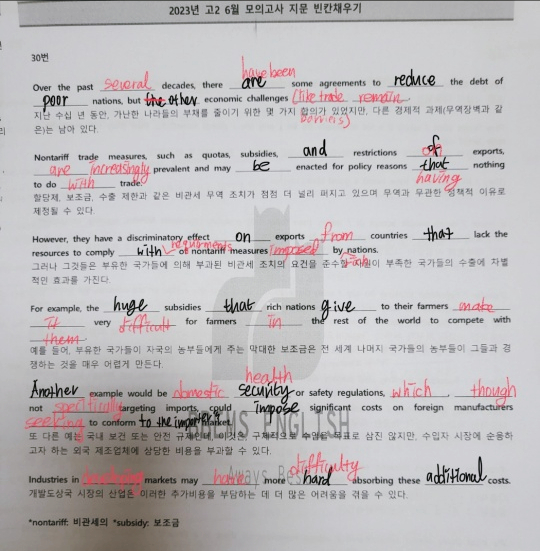 2023년 고2 6월 모의고사 지문 빈칸채우기
30번
have been
Over the past several decades, there are some agreements to reduce the debt of
poor nations, but the other economic challenges (like trade remain.
barriers)
지난 수십 년 동안, 가난한 나라들의 부채를 줄이기 위한 몇 가지 합의가 있었지만, 다른 경제적 과제(무역장벽과 같
은)는 남아 있다.
Nontariff trade measures, such as quotas, subsidies, and restrictions of exports,
on
are increasingly prevalent and may be enacted for policy reasons that nothing
having
to do with trade.
할당제, 보조금, 수출 제한과 같은 비관세 무역 조치가 점점 더 널리 퍼지고 있으며 무역과 무관한 정책적 이유로
제정될 수 있다.
However, they have a discriminatory effect on exports from countries that lack the
resources to comply with requirments of nontariff measures imposed by nations.
rich
그러나 그것들은 부유한 국가들에 의해 부과된 비관세 조치의 요건을 준수할 자원이 부족한 국가들의 수출에 차별
적인 효과를 가진다.
For example, the huge subsidies that rich nations give to their farmers make
it very difficult for farmers in the rest of the world to compete with
them.
예를 들어, 부유한 국가들이 자국의 농부들에게 주는 막대한 보조금은 전 세계 나머지 국가들의 농부들이 그들과 경
쟁하는 것을 매우 어렵게 만든다.
health
Another example would be domestic security or safety regulations, which, though
not specifically targeting imports, could impose significant costs on foreign manufacturers
seeking to conform to the importer's market.
BEHIS ENGLISH
또 다른 예는 국내 보건 또는 안전 규제인데, 이것은 구체적으로 수입을 목표로 삼진 않지만, 수입자 시장에 순응하
고자 하는 외국 제조업체에 상당한 비용을 부과할 수 있다.
difficulty
Industries in developing markets may have more hard absorbing these additional costs.
Always Bes
개발도상국 시장의 산업은 이러한 추가비용을 부담하는 데 더 많은 어려움을 겪을 수 있다.
*nontariff: 비관세의 *subsidy: 보조금